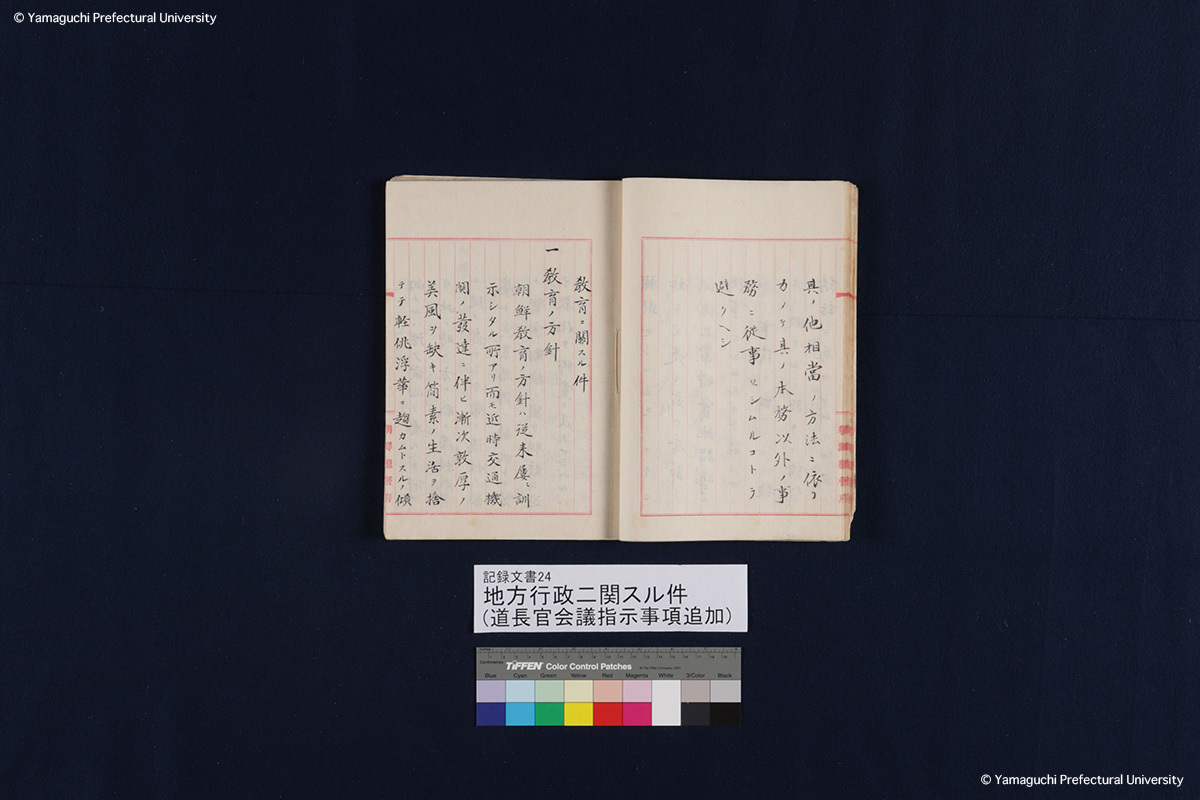 © Yamaguchi Prefectural University
其ノ他相當ノ方法ニ依リ
カメテ其ノ本務以外ノ事
務ニ從事セシムルコトヲ
避クヘシ
教育ニ關スル件
一 教育ノ方針
朝鮮教育ノ方針ハ從来屢々訓
示シタル所アリ而モ近時交通機
関ノ發達ニ伴ヒ漸次敦厚ノ
美風ヲ缺キ簡素ノ生活ヲ捨
テテ軽佻浮華ニ趨カムトスルノ傾
記録文書24
地方行政二関スル件
(道長官会議指示事項追加)
Centimetres
TIFFEN Color Control Patches
Blue Cyan Green Yellow Red Magenta White 3/Color Black
© Yamaguchi Prefectural University